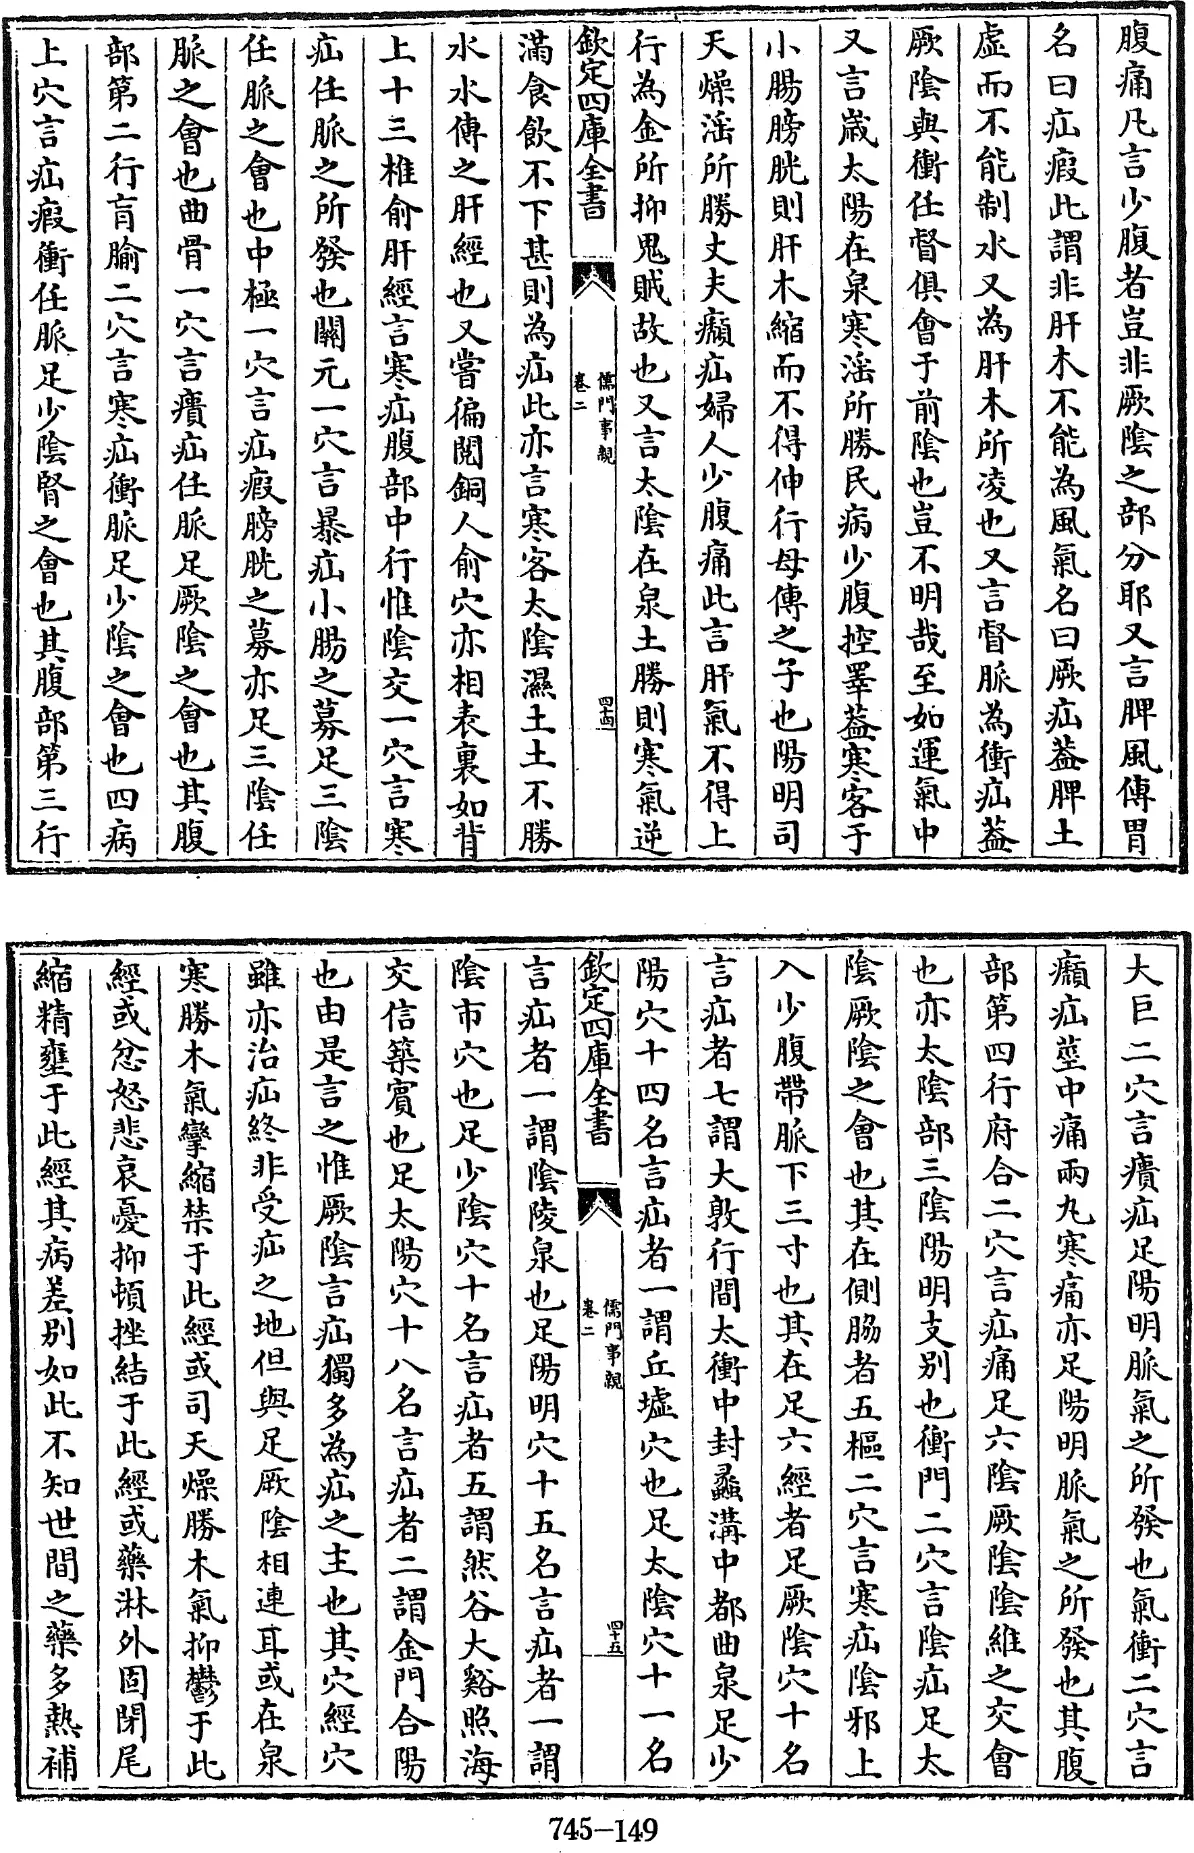 腹痛凡言少腹者豈非厥陰之部分耶又言脾風傳胃
名曰疝瘕此謂非肝木不能為風氣名曰厥疝葢脾土
虛而不能制水又為肝木所凌也又言督脈為衝疝葢
厥陰與衝任督俱會于前陰也豈不明哉至如運氣中
又言嵗太陽在泉寒淫所勝民病少腹控睪葢寒客于
小腸膀胱則肝木縮而不得伸行母傳之子也陽明司
天燥淫所勝丈夫㿗疝婦人少腹痛此言肝氣不得上
行為金所抑鬼賊故也又言太陰在泉土勝則寒氣逆
欽定四庫全書
儒門事親
卷二
四十四
滿食飲不下甚則為疝此亦言寒客太陰濕土土不勝
水水傳之肝經也又嘗徧閱銅人俞穴亦相表裏如背
上十三椎俞肝經言寒疝腹部中行惟陰交一穴言寒
疝任脈之所發也關元一穴言暴疝小腸之募足三陰
任脈之會也中極一穴言疝瘕膀胱之募亦足三陰任
脈之會也曲骨一穴言㿉疝任脈足厥陰之會也其腹
部第二行肓腧二穴言寒疝衝脈足少陰之會也四病
上穴言疝瘕衝任脈足少陰腎之會也其腹部第三行
大巨二穴言㿉疝足陽明脈氣之所發也氣衝二穴言
㿗疝莖中痛兩丸寒痛亦足陽明脈氣之所發也其腹
部第四行府合二穴言疝痛足六陰厥陰陰維之交會
也亦太陰部三陰陽明支別也衝門二穴言陰疝足太
陰厥陰之會也其在側脇者五樞二穴言寒疝陰邪上
入少腹帶脈下三寸也其在足六經者足厥陰穴十名
言疝者七謂大敦行間太衝中封蠡溝中都曲泉足少
陽穴十四名言疝者一謂丘墟穴也足太陰穴十一名
欽定四庫全書
儒門事親
卷二
四十五
言疝者一謂陰陵泉也足陽明穴十五名言疝者一謂
陰市穴也足少陰穴十名言疝者五謂然谷大谿照海
交信築賓也足太陽穴十八名言疝者二謂金門合陽
也由是言之惟厥陰言疝獨多為疝之主也其穴經穴
雖亦治疝終非受疝之地但與足厥陰相連耳或在泉
寒勝木氣攣縮禁于此經或司天燥勝木氣抑鬱于此
經或忿怒悲哀憂抑頓挫結于此經或藥淋外固閉尾
縮精壅于此經其病差別如此不知世間之藥多熱補
745-149